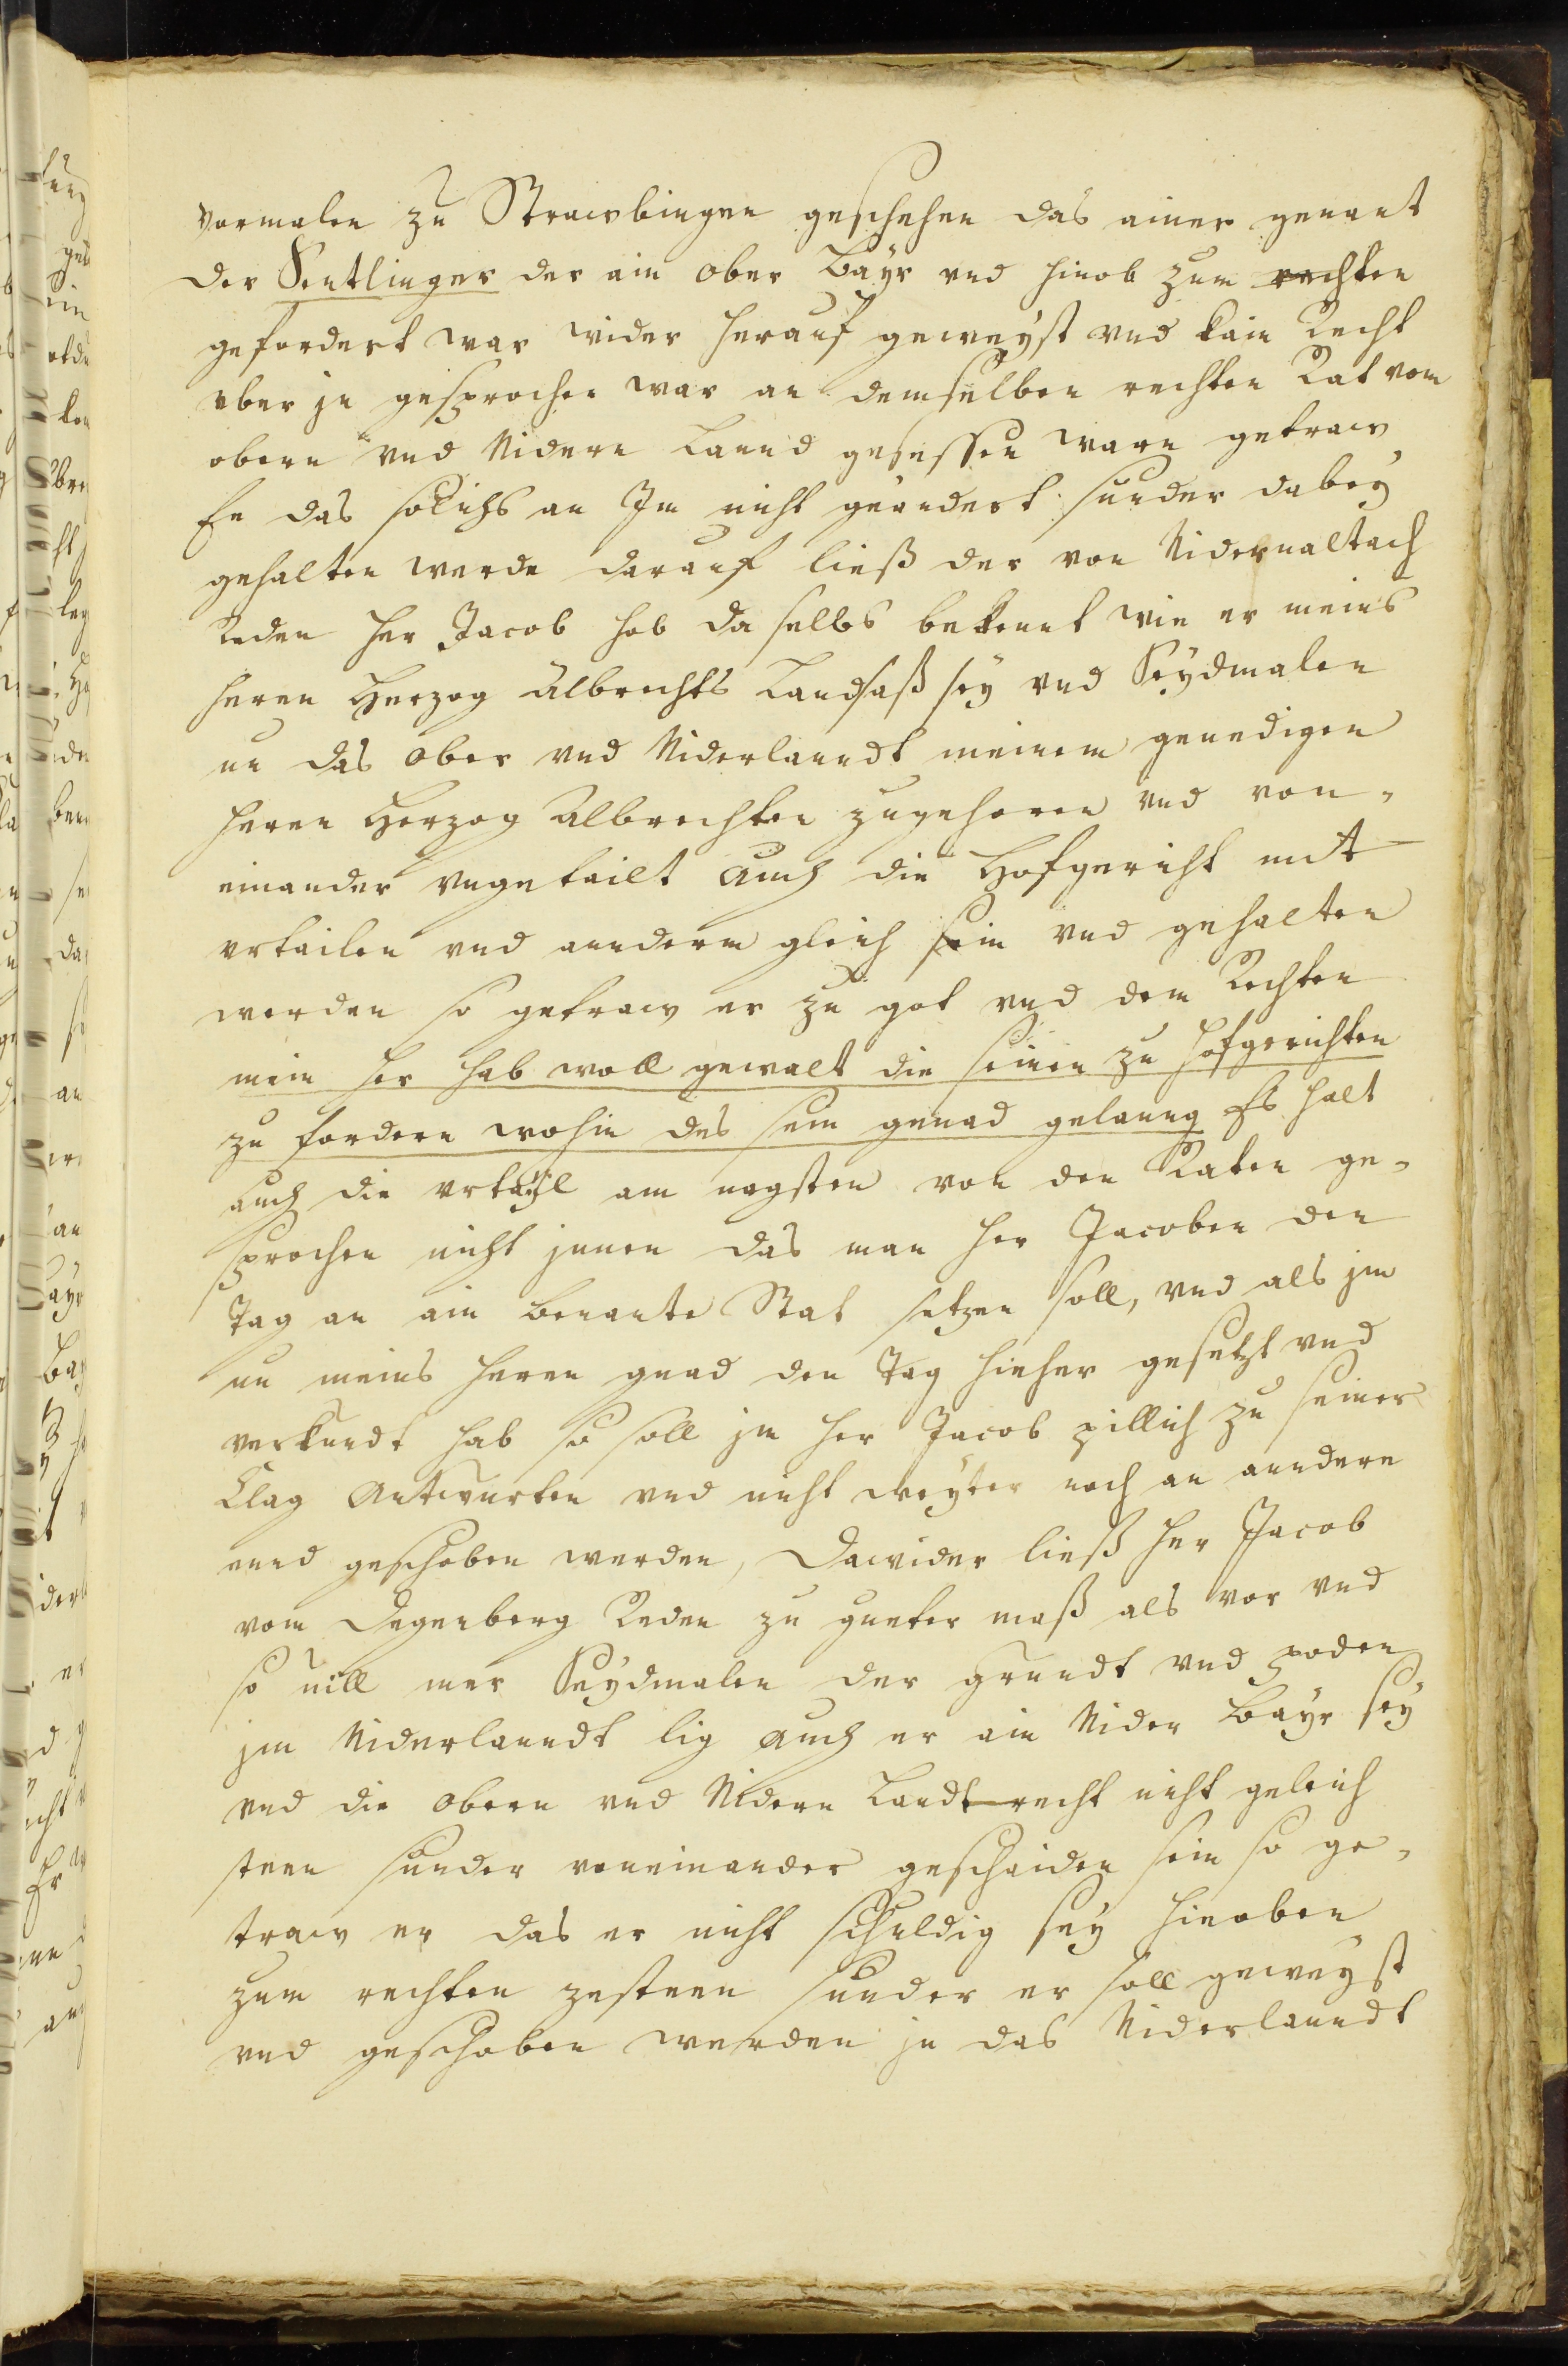 vormalen zu Strawbingen geschehen das ainer genant
der Sentlinger der ain ober Bayr vnd hinob zum rechten
gefordert war wider herauf geweyst vnd kain Recht
vber jn gesprochen war an demselben rechten Rat vom
obern vnd Nidern Lannd gesessen warn getraw
Er das solichs an Im nicht geändert sunder dabey
gehalten werde darauf ließ der von Nidernaltach
Reden her Jacob hab da selbs bekennt wie er meins
herrn Herzog Albrechts Landsaß sey vnd Seydmalen
nu das ober vnd Niderlanndt meinem genedigen
herrn Herzog Albrechten zugehoren vnd von-
einander vngetailt auch die Hofgericht mit
vrtailen vnd anndern gleich sein vnd gehalten
werden so getraw er zu got vnd dem Rechten
mein her hab woll gewalt die seinen zu hofgerichten
zu fordern wohin des sein genad gelanng Es halt
auch die vrtayl am nagsten von den Raten ge-
sprochen nicht jnnen das man her Jacoben den
Tag an ain benante Stat setzen soll, vnd als jm
nu meins herrn gnad den Tag hieher gesetzt vnd
verkundt hab so soll jm her Jacob pillich zu seiner
Clag Antwurten vnd nicht weyter noch an anndere
ennd geschoben werden, Dawider ließ her Jacob
vom Degenberg Reden zu gueter maß als vor vnd
so vill mer Seydmalen der grundt vnd poden
jm Niderlanndt lig auch er ain Nider Bayr sey
vnd die obern vnd Nidern Landtrecht nicht geleich
steen sunder voneinander geschaiden sein so ge-
traw er das er nicht schuldig sey hieoben
zum rechten zesteen sunder er soll geweyst
vnd geschoben werden jn das Niderlanndt